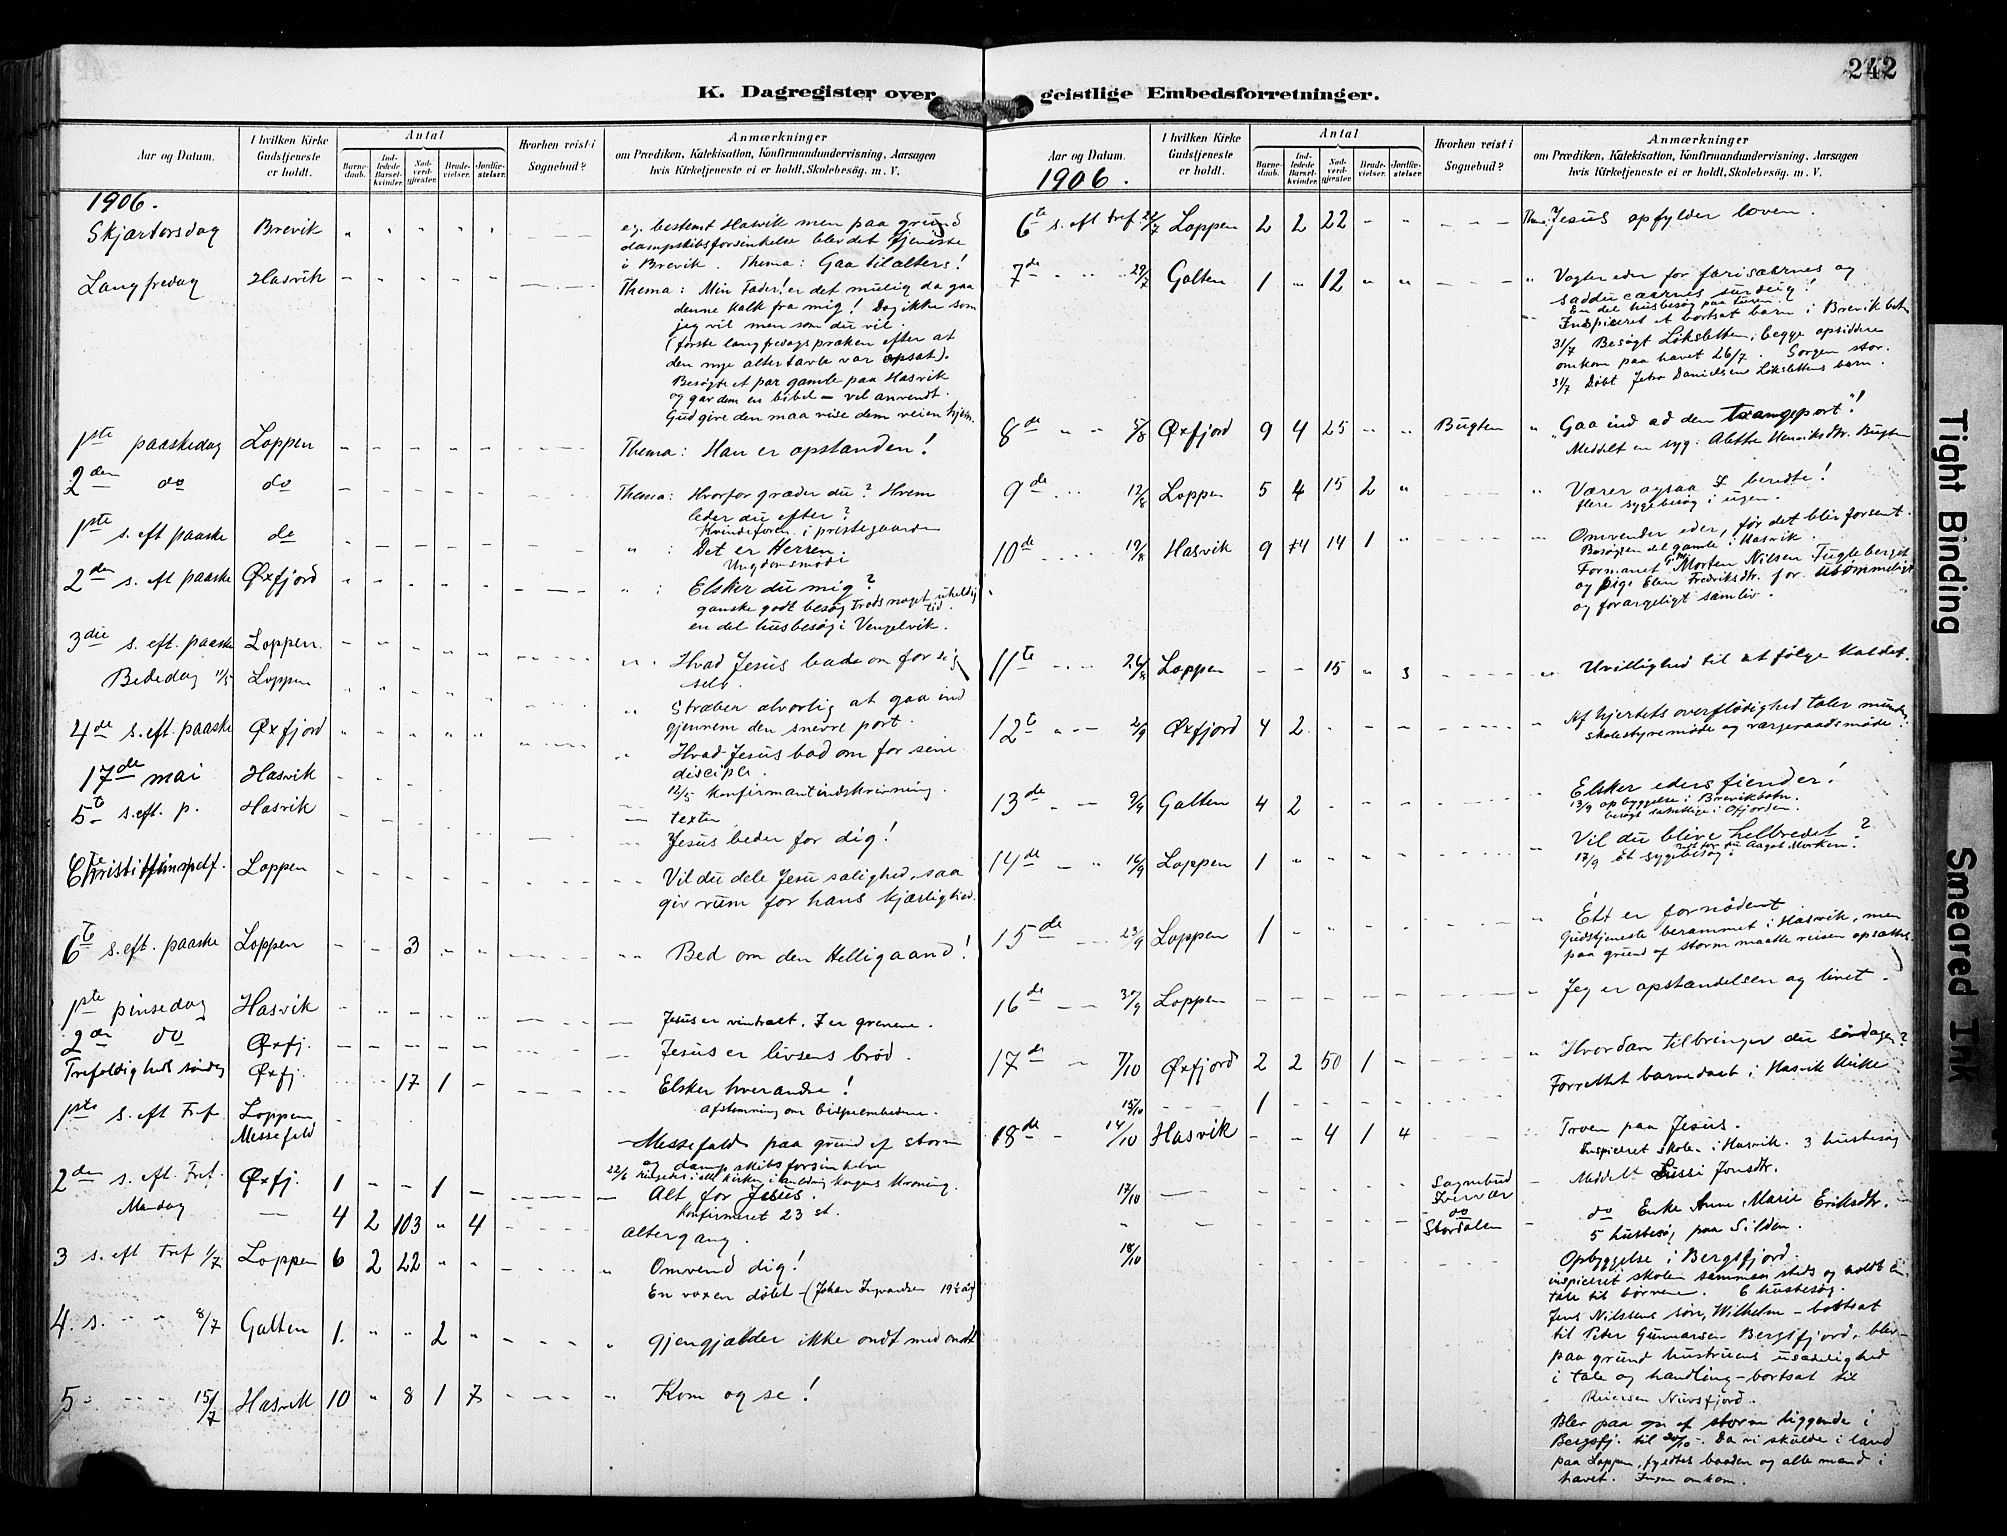 242
K. Dagregister over geistlige Embedsforretninger.
Aar og Datum.
I hvilken Kirke Gudstjeneste er holdt.
Antal
Barnedaab.
Indledede Barselkvinder.
Nadverdgjester.
Brudevielser.
Jordfæstelser.
Hvorhen reist i Sognebud?
Anmærkninger
om Prædiken, Katekisation, Konfirmandundervisning, Aarsagen
hvis Kirketjeneste ei er holdt, Skolebesøg. m. V.
1906.
Skjærtorsdag Brevik bestemt Hasvik men paa grund
dampskibsforsinkelse blev det tjeneste
i Brevik. Thema: Gaa til alters!
Langfredag Hasvik Thema: Min Fader! er det mulig da gaa
denne kalk fra mig! Dog ikke som
jeg vil men som du vil.
(første langfredagspræken efter at
den nye altertavle var opsat).
Besøgte et par gamle paa Hasvik
og gav dem en bibel – vel anvendt.
Gud give den maa vise dem veien hjem.
1ste paaskedag Loppen Thema: Han er opstanden!
2den do do Thema: Hvorfor græder du? Hvem
leder du efter?
Kvindeforen. i prestegaarden
1ste s. eft paaske do " : Det er Herren.
Ungdomsmøde
2den s. eft paaske Øxfjord " : Elsker du mig?
ganske godt besøg trods noget uheldig
tid.
en del husbesøg i Vengelvik.
3die s. eft. paaske Loppen " Hvad Jesus bad om for sig
selv.
Bededag 11/5 Loppen " Stræber alvorlig at gaa ind
gjennem den snevre port.
4de s. eft. paaske Øxfjord " Hvad Jesus bad om for sine
disciple.
17de mai Hasvik 12/5 Konfirmantindskrivning.
texten
5te s. eft. p. Hasvik Jesus beder for dig!
Christi Himmelf. Loppen Vil du dele Jesu salighed, saa
giv rum for hans kjærlighed.
6te s. eft. paaske Loppen 3 Bed om den Helligaand!
1ste pinsedag Hasvik Jesus er vintræet. I er grenene.
2den do Øxfj. Jesus er livsens brød.
Trefoldigheds søndag Øxfj. 17 1 Elsker hverandre!
Afstemning om bispeembedene.
1ste s. eft Tref. Loppen
Messefald Messefald paa grund af storm
og dampskibsforsinkelse
22/6 i kirken i anledng kongens kroning.
2den s. eft. Tref. Øxfj. 1 – – 1 – Alt for Jesus.
Konfirmeret 23 st.
Mandag 4 2 103 " 4 altergang.
3 s. eft Tref 1/7 Loppen 6 2 22 " Omvend dig!
En voxen døbt – (Johan 19½ år)
4. s. " " 8/7 Galten 1. " " 2 " gjengjælder ikke ondt med ondt
5 " " 15/7 Hasvik 10 " 8 1 7 " Kom og se!
Aar og Datum.
1906.
I hvilken Kirke Gudstjeneste er holdt.
Antal
Barnedaab.
Indledede Barselkvinder.
Nadverdgjester.
Brudevielser.
Jordfæstelser.
Hvorhen reist i Sognebud?
Anmærkninger
om Prædiken, Katekisation, Konfirmandundervisning, Aarsagen
hvis Kirketjeneste ei er holdt, Skolebesøg. m. V.
6te s. eft tref. 22/7 Loppen 2 2 22 Thema: Jesus opfylder loven.
7de " " 29/7 Galten 1 " 12 " Vogter eder for farisæernes og
sadducæernes surdeig!
En del husbesøg paa turen.
Inspiceret et bortsat barn i Brevikbotn
31/7 Besøgt Løksletten, begge opsiddere
omkom paa havet 26/7. Sorgen stor.
31/7 Døbt Danielsen Løkslettens barn.
8de " " 5/8 Øxfjord 9 4 25 Bugten " "Gaa ind ad den trange port"!
Meddelt en syg: Alette Henriksdtr. Bugten
9de " " 12/8 Loppen 5 4 15 2 " Værer ogsaa I beredte!
flere sygebesøg i ugen.
10de " " 19/8 Hasvik 9 4 14 1 " Omvender eder, før det blir forsent.
Besøgt en del gamle i Hasvik.
Formanet Morten Nilsen Fugleberget
og pige Elen Fredriksdtr. for usømmeligt
og forargeligt samliv.
11te " " 26/8 Loppen – – 15 " 3 " Uvillighed til at følge kaldet.
12te " – 2/9 Øxfjord 4 2 Af hjertets overflødighed taler munden.
skolestyremøde og værgeraadsmøde
13de – – 9/9 Galten 4 2 " Elsker eders fiender!
13/9 opbyggelse i Brevikbotn.
besøgt i Ofjorden.
14de – " 16/9 Loppen 1 " Vil du blive helbredet?
17/9 Et sygebesøg: Aagot Morken.
15de – – 23/9 Loppen 1 " Ett er fornødent
Gudstjeneste berammet i Hasvik, men
paa grund af storm maatte reisen opsættes
16de – – 30/9 Loppen " Jeg er opstandelsen og livet.
17de – 7/10 Øxfjord 2 2 50 1 " Hvordan tilbringer du søndagen?
15/10 1 Forrettet barnedaab i Hasvik kirke
18de – 14/10 Hasvik – – 4 1 4 Troen paa Jesus.
Inspiceret skolen i Hasvik. 3 husbesøg
17/10 Sognebud Meddelt Lussi Jonsdtr.
" do Stordalen do Enke Anne Marie Eriksdtr.
5 husbesøg paa Silden.
18/10 Opbyggelse i Bergsfjord.
inspiceret skolen sammensteds og holdt en
tale til børnene. 6 husbesøg.
Jens Nilssens søn, Wilhelm – bortsat
til Peter Gunnarsen Bergsfjord, blev
paa grund hustruens usædelighed
i tale og handling – bortsat til
Reiersen Nuvsfjord.
Blev paa gr. af storm liggende i
Bergsfj. til 20/10. Da vi skulde i land
paa Loppen, fyldtes baaden og alle mand i
havet. Ingen omkom.
Tight Binding
Smeared Ink